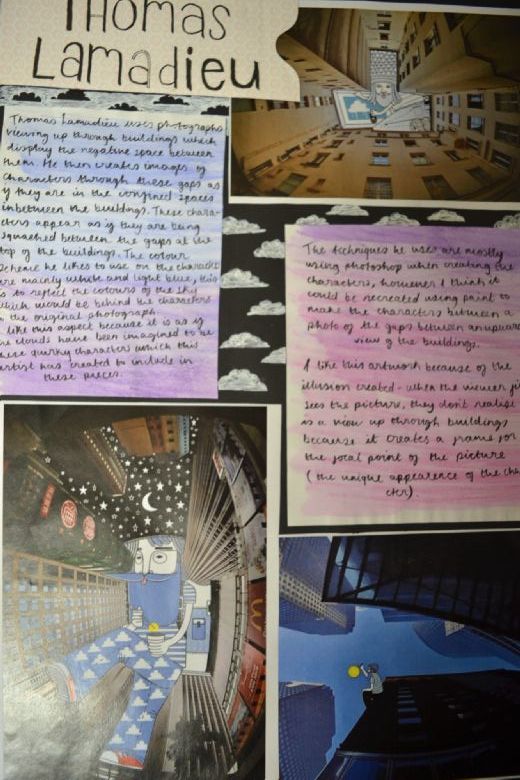 THOMAS
Lamadieu
Thomas Lamadieu uses photographs
viewing up through buildings which
display the negative space between
them. He then creates images of
characters through these gaps as
if they are in the confined spaces
inbetween the buildings. These chara-
cters appear as if they are being
squashed between the gaps at the
top of the buildings. The colour
scheme he likes to use on the characters
are mainly white and light blue, this
is to reflect the colours of the sky
which would be behind the characters
in the original photograph.
I like this aspect because it is as if
the clouds have been imagined to be
these quirky characters which this
artist has created to include in
these pieces.
The techniques he uses are mostly
using photoshop when creating the
characters, however I think it
could be recreated using paint to
make the characters between a
photo of the gaps between an upward
view of the buildings.
I like this artwork because of the
illusion created - when the viewer
sees the picture, they don't realise
is a view up through buildings
because it creates a frame for
the focal point of the picture
(the unique appearence of the chara
cter).